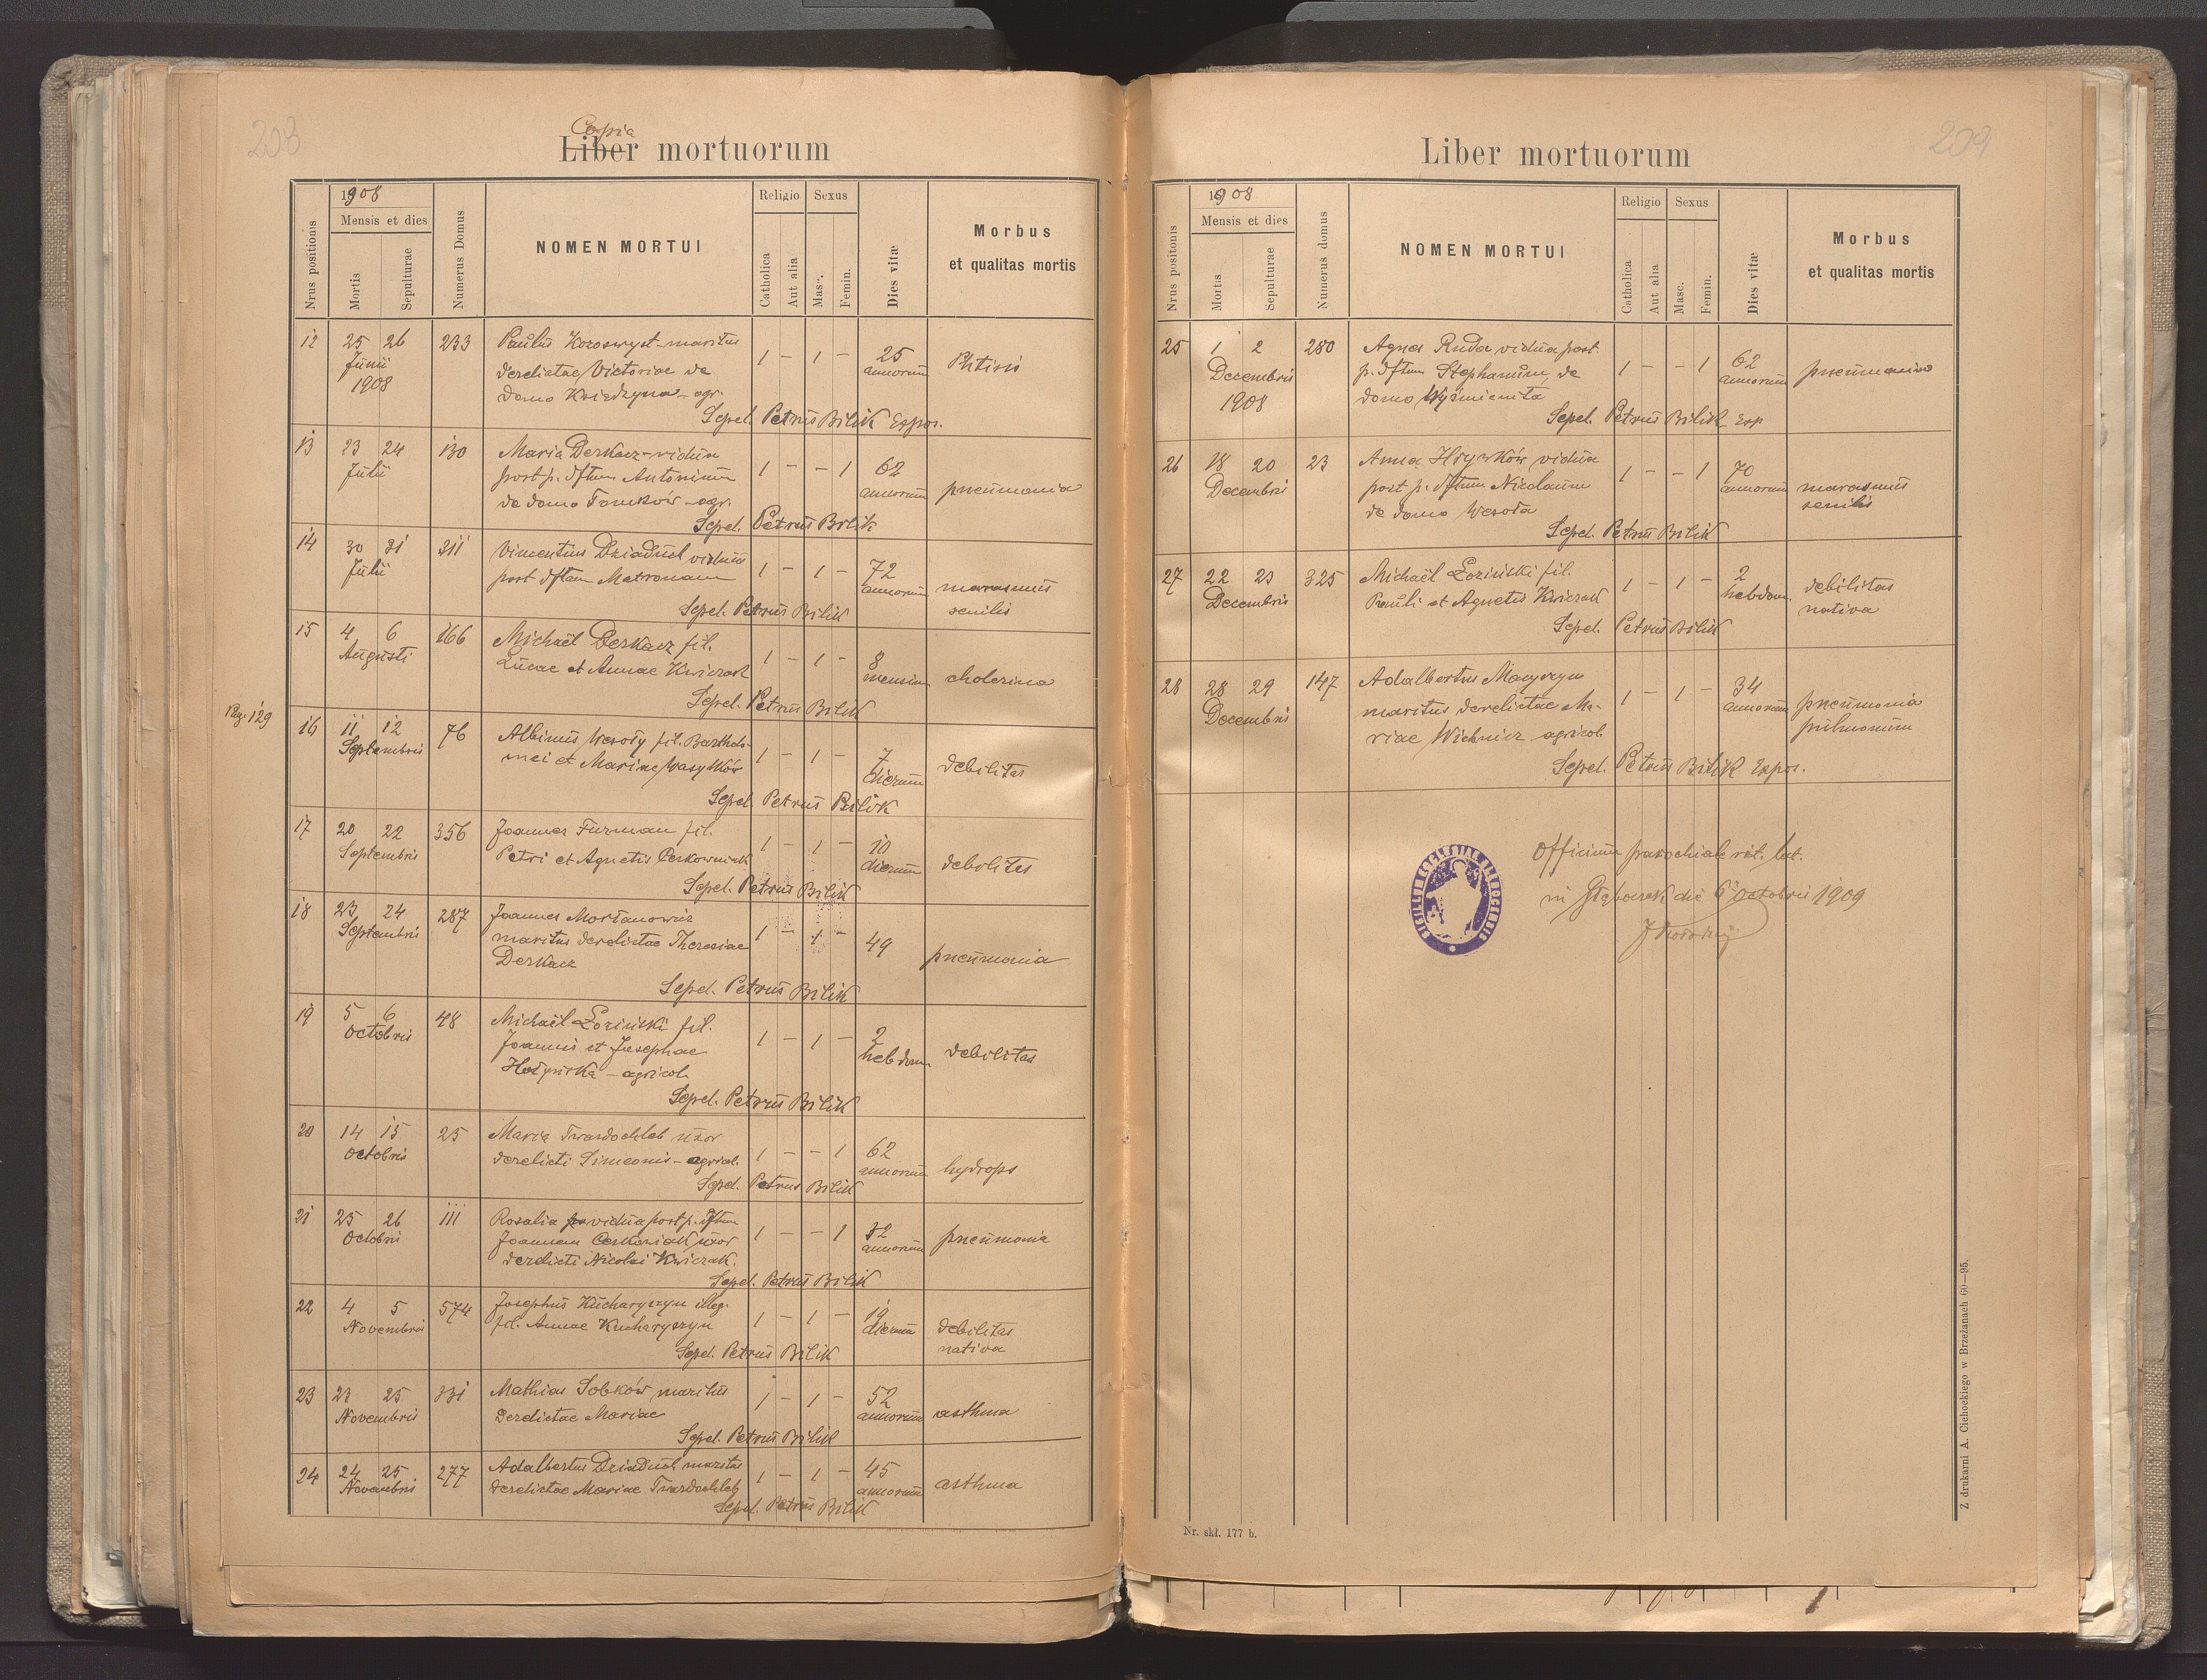 203
Copia
Liber mortuorum
Nrus positionis
1908
Mensis et dies
Mortis
Sepulturae
Numerus Domus
NOMEN MORTUI
Religio
Catholica
Aut alia
Sexus
Masc.
Femin.
Dies vitæ
Morbus
et qualitas mortis
12 25 26 233 Paulus maritus
Junii derelictae Victoriae de 1 – 1 – 25 Phtisis
1908 domo agr. annorum
Sepel. Petrus Bilik Expos.
13 23 24 130 Maria Derkacz vidua
Julii post p. dftum Antonium 1 – – 1 62
de domo Tomków agr. annorum pneumonia
Sepel. Petrus Bilik
14 30 31 311 Vincentius Dziaduch viduus
Julii post dftam Matronam 1 – 1 – 72 marasmus
annorum senilis
Sepel. Petrus Bilik
15 4 6 166 Michaël Derkacz fil.
Augusti Lucae et Annae Kwiczak 1 – 1 – 8
mensium cholerina
Sepel. Petrus Bilik
Pag. 129
16 11 12 76 Albinus Wesoły fil. Bartholo-
Septembris mei et Mariae Wasylków 1 – 1 – 7
dierum debilitas
Sepel. Petrus Bilik
17 20 22 356 Joannes Furman fil.
Septembris Petri et Agnetis 1 – 1 – 10
dierum debilitas
Sepel. Petrus Bilik
18 23 24 287 Joannes
Septembris maritus derelictae Theresiae 1 – 1 – 49
Derkacz pneumonia
Sepel. Petrus Bilik
19 5 6 48 Michaël Łoziński fil.
Octobris Joannis et Josephae 1 – 1 – 2
agricol. hebdom. debilitas
Sepel. Petrus Bilik
20 14 15 25 Maria Twardochleb uxor
Octobris derelicti Simeonis – agricol. 1 – – 1 62
annorum hydrops
Sepel. Petrus Bilik
21 25 26 111 Rosalia vidua post p. dftum
Octobris Joannem uxor 1 – – 1
annorum pneumonia
derelicti Nicolai Kwiczak.
Sepel. Petrus Bilik
22 4 5 574 Josephus Kucharyszyn illeg.
Novembris fil. Annae Kucharyszyn 1 – 1 – 19
dierum debilitas
nativa
Sepel. Petrus Bilik
23 23 25 331 Mathias Sobków maritus
Novembris derelictae Mariae 1 – 1 – 52
annorum asthma
Sepel. Petrus Bilik
24 24 25 277 Adalbertus Dziaduch maritus
Novembris derelictae Mariae Twardochleb 1 – 1 – 45
annorum asthma
Sepel. Petrus Bilik
209
Liber mortuorum
Nrus positonis
1908
Mensis et dies
Mortus
Sepulturae
Numerus domus
NOMEN MORTUI
Religio
Catholica
Aut alia
Sexus
Masc.
Femin.
Dies vitæ
Morbus
et qualitas mortis
25 1 2 280 Agnes Ruda vidua post
Decembris p. dftum Stephanum, de 1 – – 1 62 pneumonia
1908 domo annorum
Sepel. Petrus Bilik Exp
26 18 20 23 Anna Hryńków vidua
Decembris post p. dftum Nicolaum 1 – – 1 70
annorum marasmus
de domo Wesoła senilis
Sepel. Petrus Bilik
27 22 23 325 Michaël Łoziński fil.
Decembris Pauli et Agnetis Kwiczak 1 – 1 – 2
hebdom. debilitas
nativa
Sepel. Petrus Bilik
28 28 29 147 Adalbertus
Decembris maritus derelictae Ma- 1 – 1 – 34
annorum pneumonia
riae agricol. pulmonum
Sepel. Petrus Bilik Expos.
Officium parochiale rit. lat.
in die 6 octobris 1909
Z drukarni A. Cichockiego w Brzeżanach 60—95.
Nr. skł. 177 b.